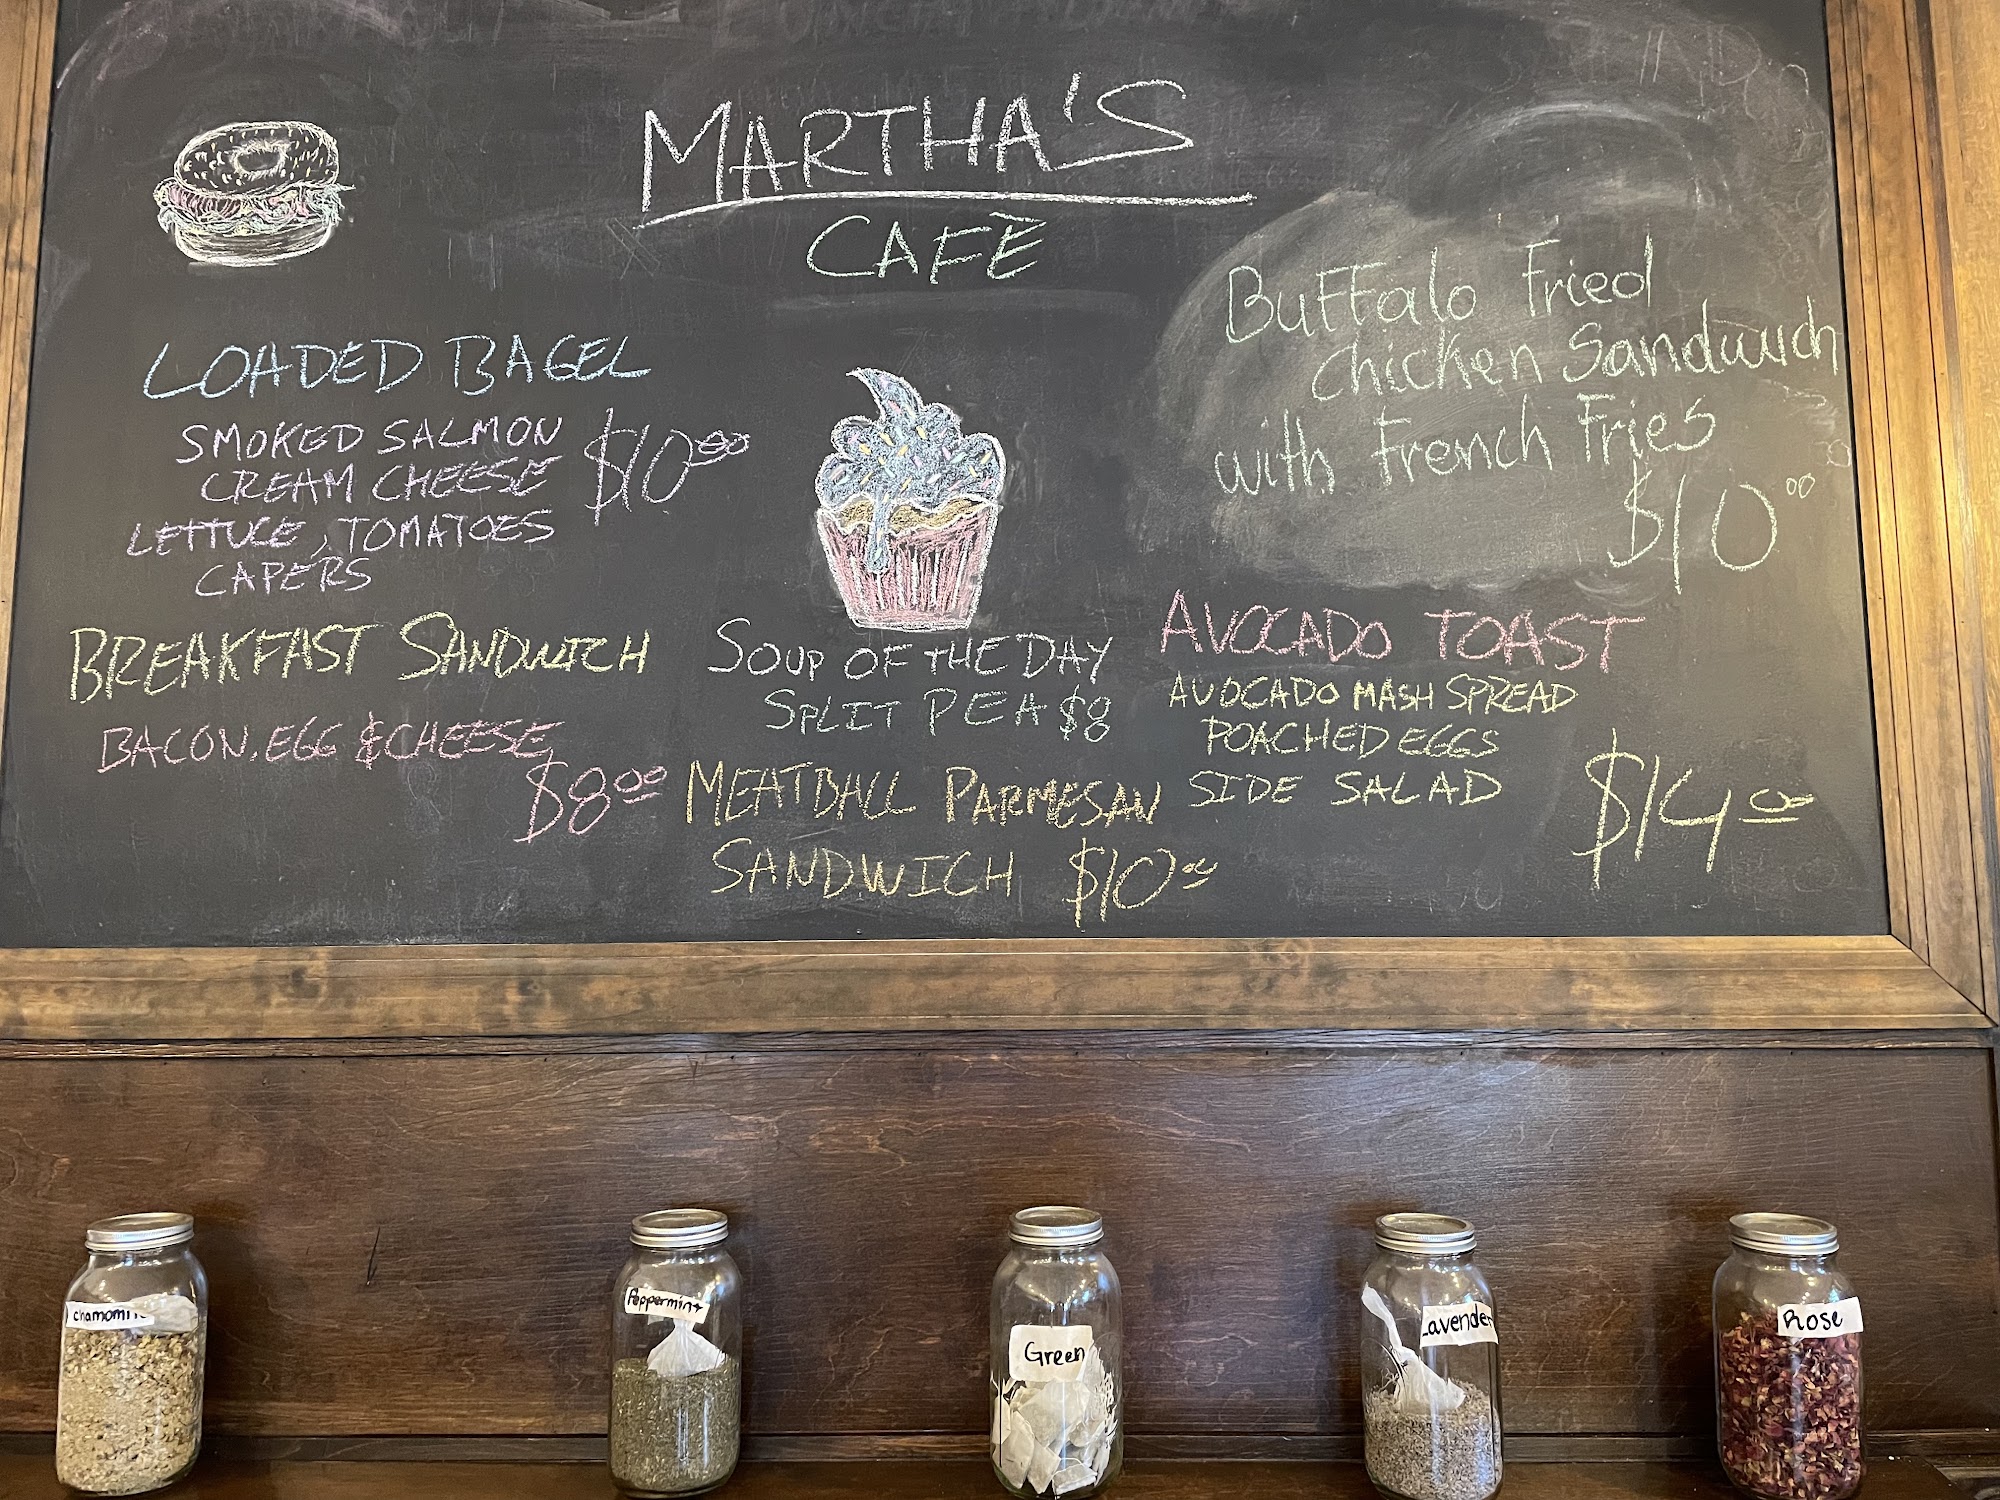 MARTHA'S
CAFÉ
LOADED BAGEL
SMOKED SALMON
CREAM CHEESE
LETTUCE, TOMATOES
CAPERS
$10.00
BREAKFAST SANDWICH
BACON, EGG & CHEESE
$8.00
SOUP OF THE DAY
SPLIT PEA $8
MEATBALL PARMESAN
SANDWICH $10.00
Buffalo Fried
Chicken Sandwich
with French Fries
$10.00
AVOCADO TOAST
AVOCADO MASH SPREAD
POACHED EGGS
SIDE SALAD
$14.00
Peppermint
Green
Lavender
Rose